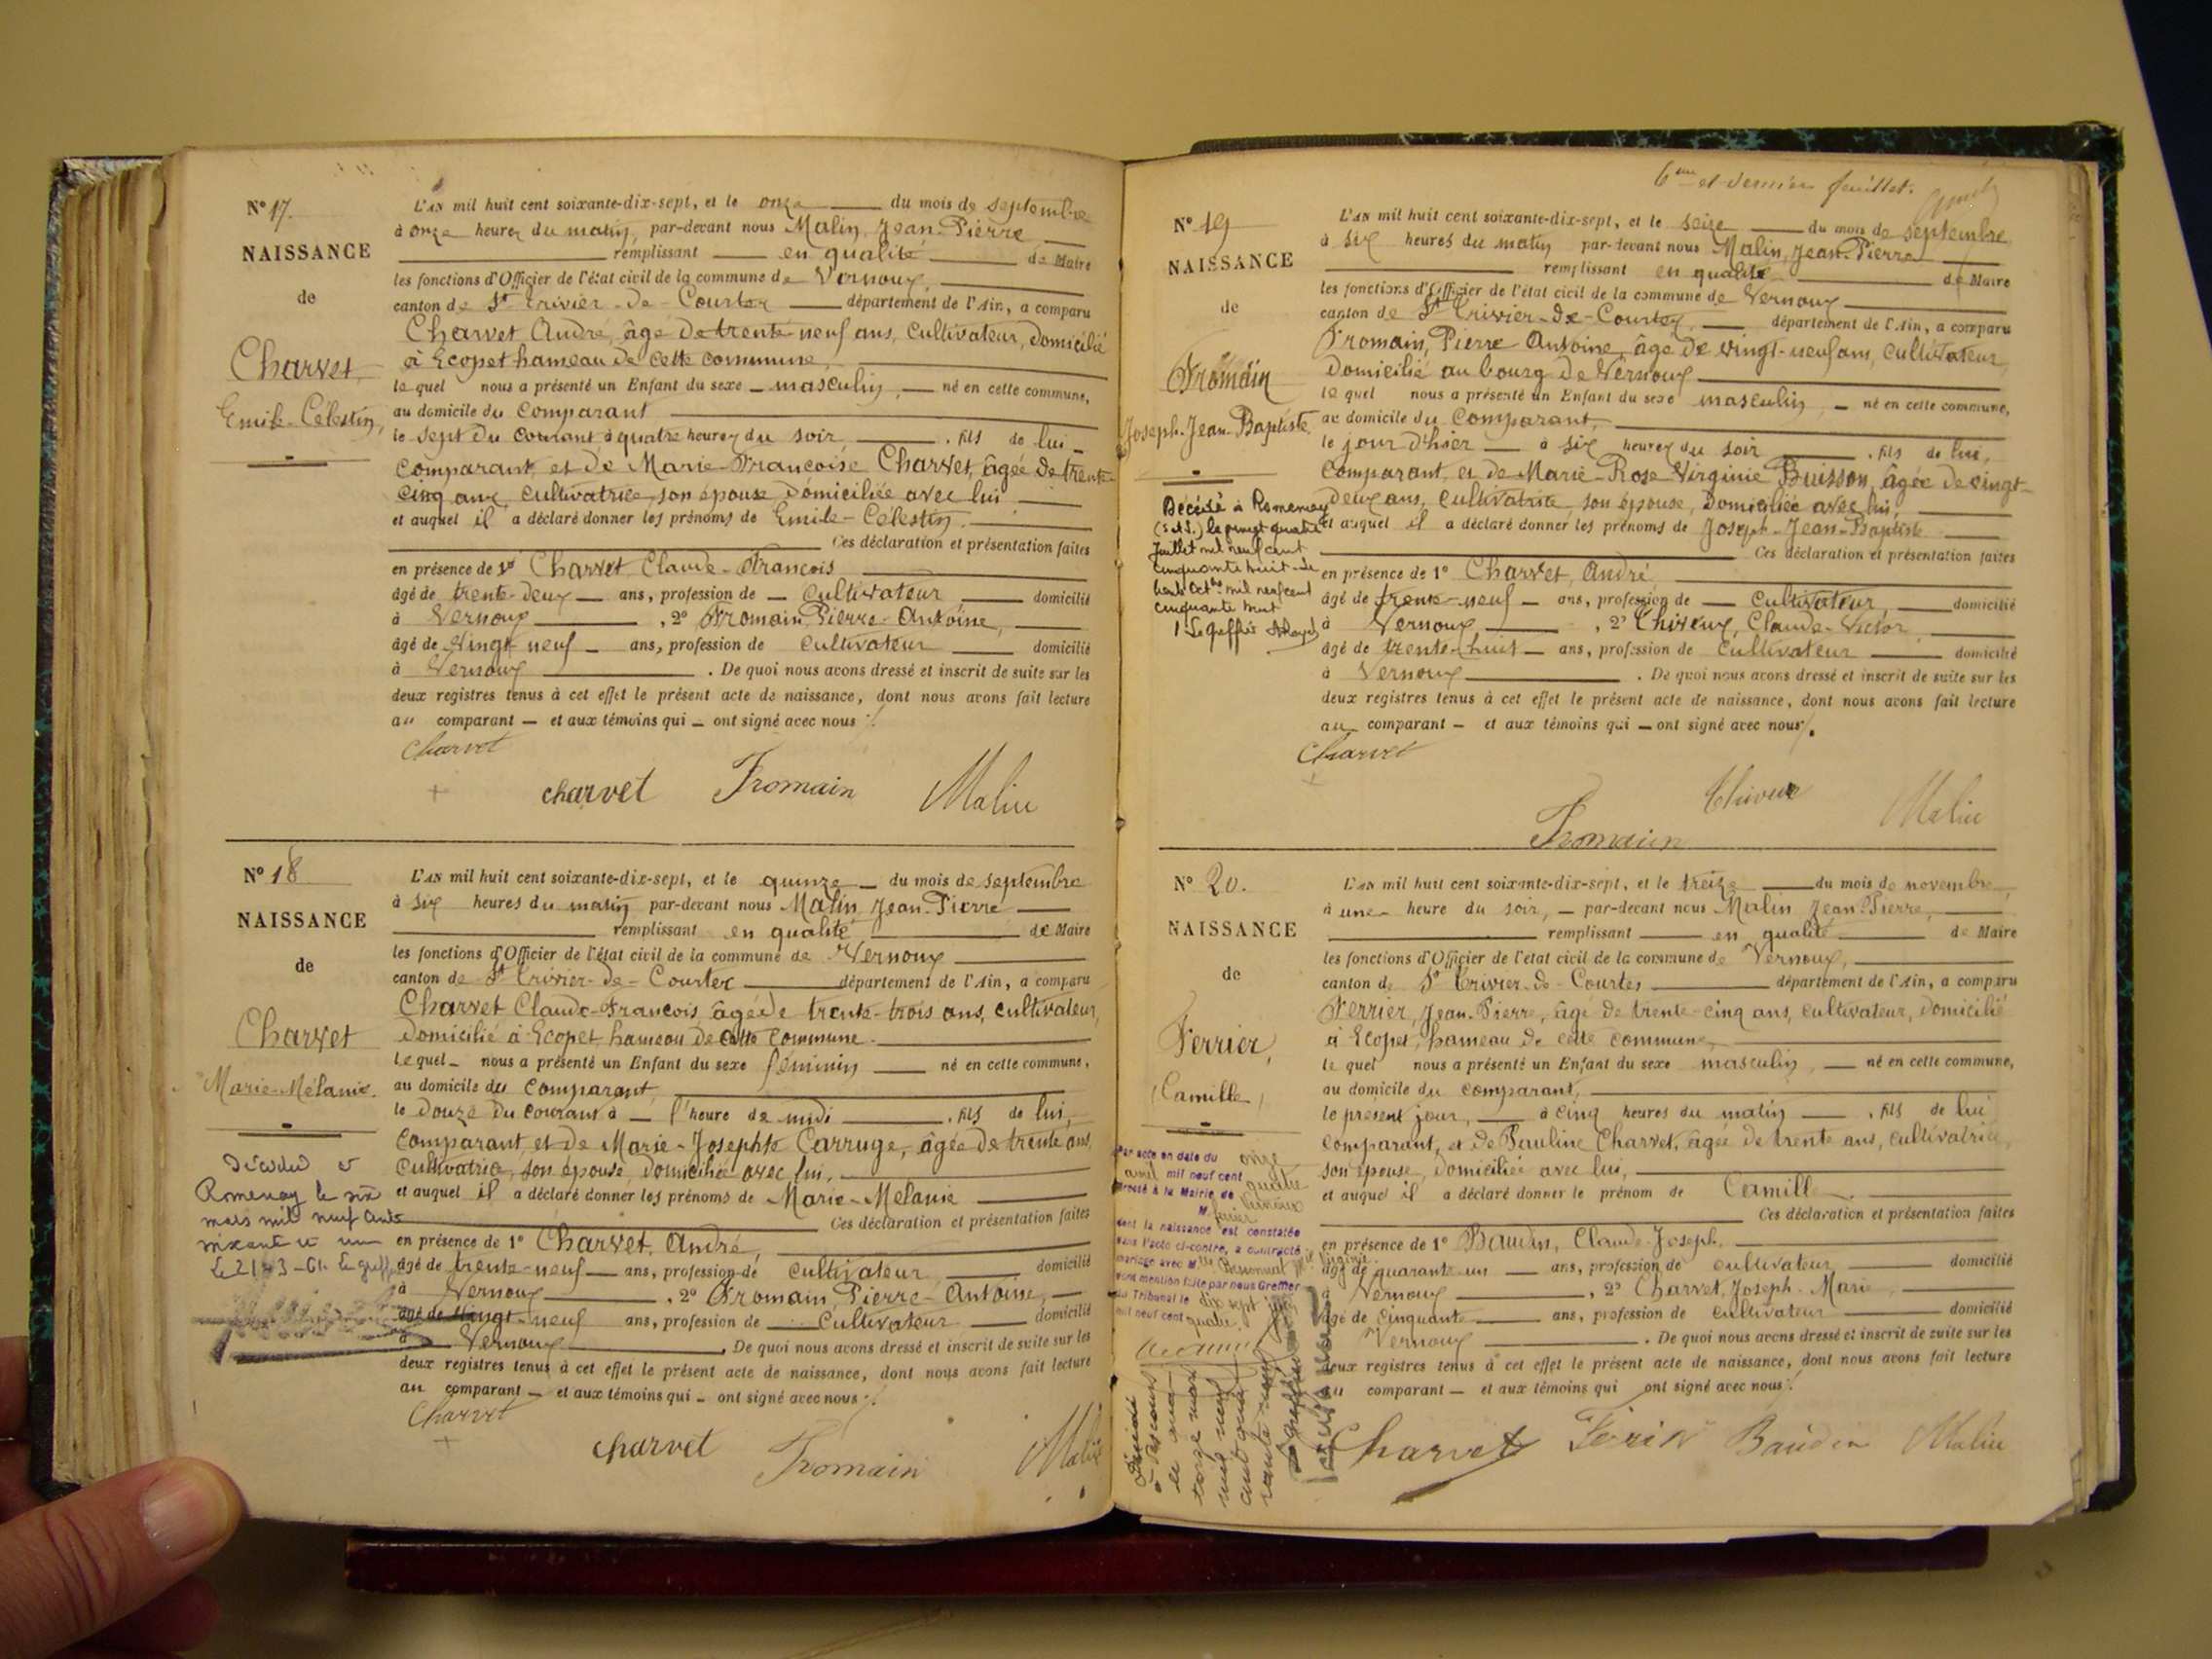 N° 17.
NAISSANCE
de
Charvet
Emile-Célestin,
L'AN mil huit cent soixante-dix-sept, et le onze du mois de septembre
à onze heures du matin, par-devant nous Malin, Jean-Pierre
remplissant en qualité de Maire
les fonctions d'Officier de l'état civil de la commune de Vernoux,
canton de St Trivier-de-Courtes département de l'Ain, a comparu
Charvet André, âgé de trente-neuf ans, cultivateur, domicilié
à Ecopet hameau de cette commune,
lequel nous a présenté un Enfant du sexe masculin, né en cette commune,
au domicile du comparant
le sept du courant à quatre heures du soir, fils de lui
comparant, et de Marie-Françoise Charvet, âgée de trente-
cinq ans, cultivatrice, son épouse domiciliée avec lui
et auquel il a déclaré donner les prénoms de Emile-Célestin.
Ces déclaration et présentation faites
en présence de 1° Charvet Claude-François
âgé de trente-deux ans, profession de cultivateur domicilié
à Vernoux, 2° Fromain, Pierre-Antoine,
âgé de vingt-neuf ans, profession de cultivateur domicilié
à Vernoux. De quoi nous avons dressé et inscrit de suite sur les
deux registres tenus à cet effet le présent acte de naissance, dont nous avons fait lecture
au comparant et aux témoins qui ont signé avec nous.
Charvet
charvet Fromain Malin
N° 18
NAISSANCE
de
Charvet
Marie-Mélanie.
Décédée à
Romenay le six
mars mil neuf cent
soixante et un
L'AN mil huit cent soixante-dix-sept, et le quinze du mois de septembre
à six heures du matin par-devant nous Malin, Jean-Pierre
remplissant en qualité de Maire
les fonctions d'Officier de l'état civil de la commune de Vernoux
canton de St Trivier-de-Courtes département de l'Ain, a comparu
Charvet Claude-François âgé de trente-trois ans, cultivateur,
domicilié à Ecopet, hameau de cette commune.
lequel nous a présenté un Enfant du sexe féminin né en cette commune,
au domicile du comparant,
le douze du courant à l'heure de midi, fils de lui,
comparant, et de Marie-Josephte Carruge, âgée de trente ans,
cultivatrice, son épouse, domiciliée avec lui,
et auquel il a déclaré donner les prénoms de Marie-Mélanie
Ces déclaration et présentation faites
en présence de 1° Charvet, André,
âgé de trente-neuf ans, profession de cultivateur domicilié
à Vernoux, 2° Fromain, Pierre-Antoine,
âgé de vingt-neuf ans, profession de cultivateur domicilié
à Vernoux. De quoi nous avons dressé et inscrit de suite sur les
deux registres tenus à cet effet le présent acte de naissance, dont nous avons fait lecture
au comparant et aux témoins qui ont signé avec nous.
Charvet
charvet Fromain Malin
6me et dernier feuillet.
N° 19
NAISSANCE
de
Fromain
Joseph-Jean-Baptiste.
Décédé à Romenay
(S.&L.) le vingt quatre
Juillet mil neuf cent
cinquante huit
mil neuf cent
cinquante huit
Le Greffier
L'AN mil huit cent soixante-dix-sept, et le seize du mois de septembre
à six heures du matin par-devant nous Malin, Jean-Pierre
remplissant en qualité de Maire
les fonctions d'Officier de l'état civil de la commune de Vernoux
canton de St Trivier-de-Courtes, département de l'Ain, a comparu
Fromain, Pierre-Antoine, âgé de vingt-neuf ans, cultivateur,
domicilié au bourg de Vernoux
lequel nous a présenté un Enfant du sexe masculin, né en cette commune,
au domicile du comparant,
le jour d'hier à six heures du soir, fils de lui,
comparant, et de Marie-Rose-Virginie Buisson, âgée de vingt-
deux ans, cultivatrice, son épouse, domiciliée avec lui,
et auquel il a déclaré donner les prénoms de Joseph-Jean-Baptiste
Ces déclaration et présentation faites
en présence de 1° Charvet, André
âgé de trente-neuf ans, profession de cultivateur, domicilié
à Vernoux, 2° Chiveux, Claude-Victor,
âgé de trente-huit ans, profession de cultivateur domicilié
à Vernoux. De quoi nous avons dressé et inscrit de suite sur les
deux registres tenus à cet effet le présent acte de naissance, dont nous avons fait lecture
au comparant et aux témoins qui ont signé avec nous.
Charvet
Chiveux Malin
Fromain
N° 20.
NAISSANCE
de
Ferrier,
Camille,
Par acte en date du onze
avril mil neuf cent quatre
dressé à la Mairie de Vernoux
M. 
dont la naissance est constatée
dans l'acte ci-contre, a contracté
mariage avec Mlle
dont mention faite par nous Greffier
du Tribunal le dix sept
mil neuf cent quatre.
L'AN mil huit cent soixante-dix-sept, et le treize du mois de novembre,
à une heure du soir, par-devant nous Malin Jean-Pierre,
remplissant en qualité de Maire
les fonctions d'Officier de l'état civil de la commune de Vernoux,
canton de St Trivier-de-Courtes département de l'Ain, a comparu
Ferrier, Jean-Pierre, âgé de trente-cinq ans, cultivateur, domicilié
à Ecopet, hameau de cette commune,
lequel nous a présenté un Enfant du sexe masculin, né en cette commune,
au domicile du comparant,
le présent jour, à cinq heures du matin, fils de lui
comparant, et de Pauline Charvet, âgée de trente ans, cultivatrice,
son épouse, domiciliée avec lui,
et auquel il a déclaré donner le prénom de Camille.
Ces déclaration et présentation faites
en présence de 1° Baudin, Claude-Joseph,
âgé de quarante un ans, profession de cultivateur domicilié
à Vernoux, 2° Charvet, Joseph-Marie,
âgé de cinquante ans, profession de cultivateur domicilié
Vernoux. De quoi nous avons dressé et inscrit de suite sur les
deux registres tenus à cet effet le présent acte de naissance, dont nous avons fait lecture
au comparant et aux témoins qui ont signé avec nous.
Charvet Baudin Malin